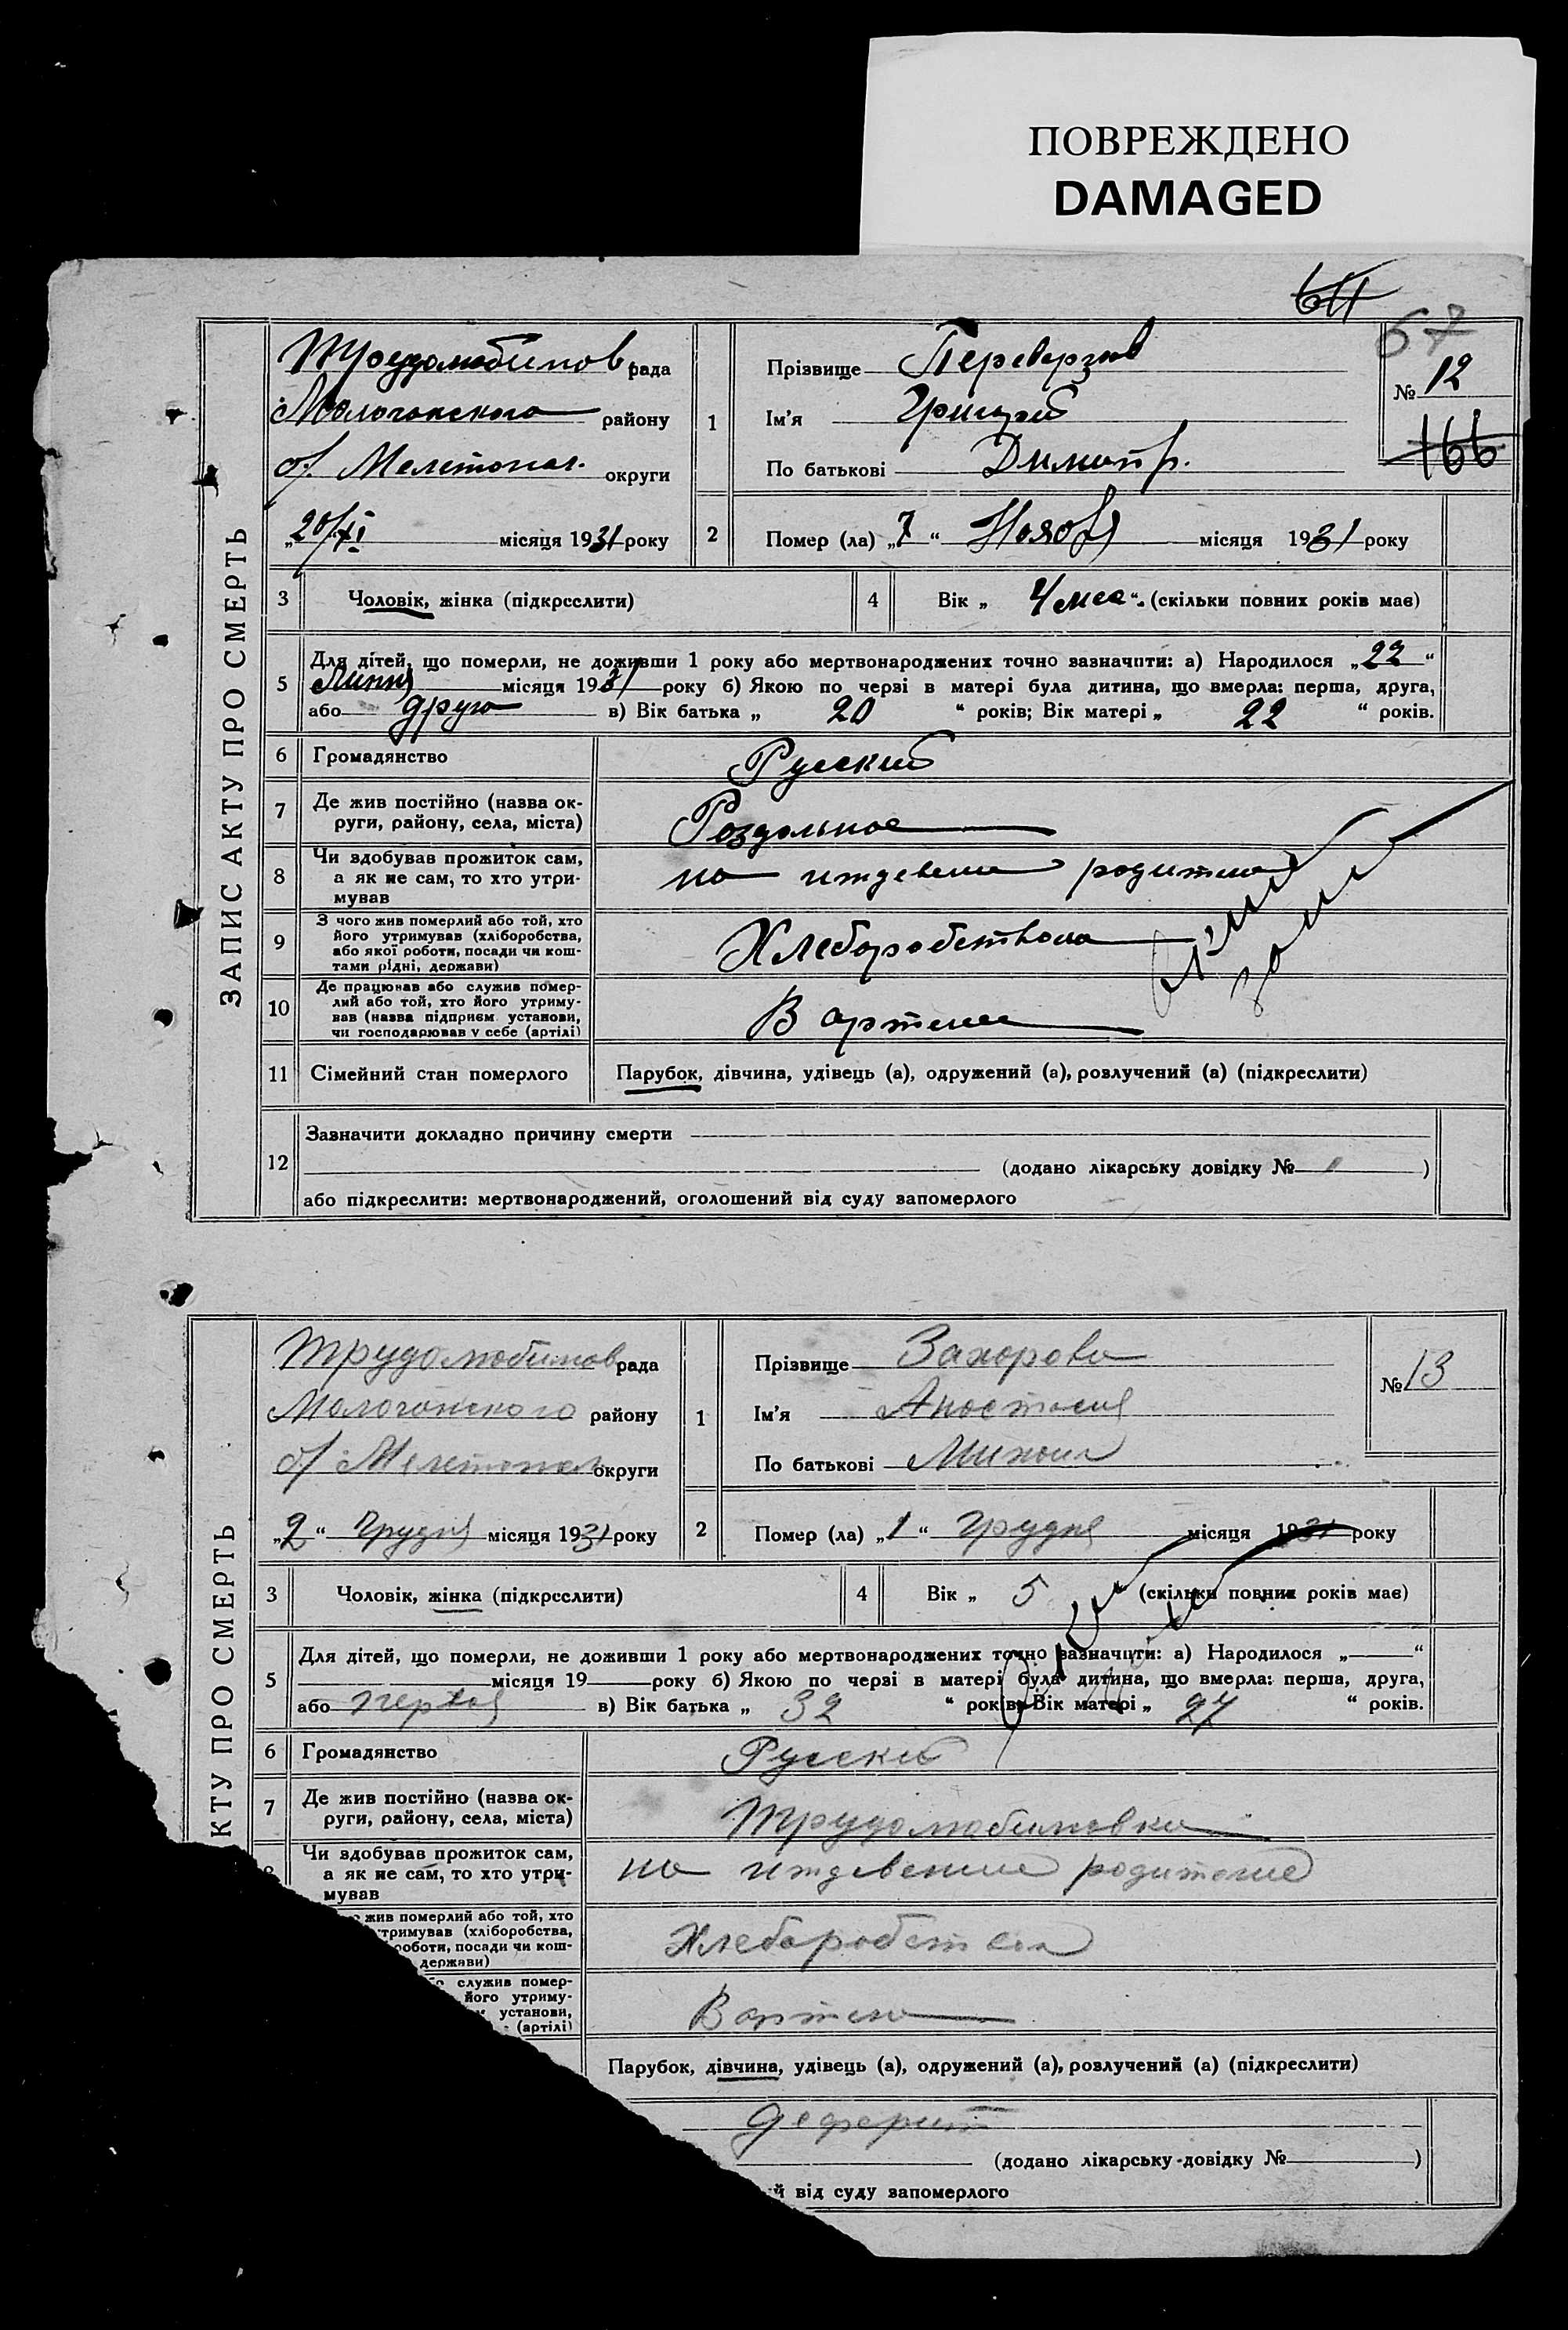 ПОВРЕЖДЕНО
DAMAGED
67
ЗАПИС АКТУ ПРО СМЕРТЬ
Трудолюбимов рада
Молочанского району
б/ Мелитопол. округи
„20/XI місяця 1931 року
1
Прізвище Переверзев
Ім'я Григорий
По батькові Димитр.
№ 12
166
2
Помер (ла) „7“ Ноября місяця 1931 року
3 Чоловік, жінка (підкреслити)
4 Вік „ 4 мес “. (скільки повних років має)
5 Для дітей, що померли, не доживши 1 року або мертвонароджених точно зазначити: а) Народилося „22“
Липня місяця 1931 року б) Якою по черзі в матері була дитина, що вмерла: перша, друга,
або друга в) Вік батька „ 20 “ років; Вік матері „ 22 “ років.
6 Громадянство Русский
7 Де жив постійно (назва ок-
руги, району, села, міста) Роздольное
8 Чи здобував прожиток сам,
а як не сам, то хто утри-
мував
на иждевении родителей
9 З чого жив померлий або той, хто
його утримував (хліборобства,
або якої роботи, посади чи кош-
тами рідні, держави)
Хлеборобством
10 Де працював або служив помер-
лий або той, хто його утриму-
вав (назва підприєм. установи,
чи господарював у себе (артілі)
В артели
11 Сімейний стан померлого Парубок, дівчина, удівець (а), одружений (а), розлучений (а) (підкреслити)
12 Зазначити докладно причину смерти
(додано лікарську довідку № )
або підкреслити: мертвонароджений, оголошений від суду запомерлого
КТУ ПРО СМЕРТЬ
Трудолюбимов рада
Молочанского району
б/ Мелитопол округи
„2“ Грудня місяця 1931 року
1
Прізвище Захорова
Ім'я Анастасия
По батькові Михаил
№ 13
2
Помер (ла) „1“ Грудня місяця 1931 року
3 Чоловік, жінка (підкреслити)
4 Вік „ 5 (скільки повних років має)
5 Для дітей, що померли, не доживши 1 року або мертвонароджених точно зазначити: а) Народилося „ “
місяця 19 року б) Якою по черзі в матері була дитина, що вмерла: перша, друга,
або первая в) Вік батька „ 32 “ років; Вік матері „ 27 “ років.
6 Громадянство Русский
7 Де жив постійно (назва ок-
руги, району, села, міста) Трудолюбимовка
8 Чи здобував прожиток сам,
а як не сам, то хто утри-
мував
на иждевении родителей
жив померлий або той, хто
утримував (хліборобства,
роботи, посади чи кош-
держави)
Хлеборобством
служив помер-
його утриму-
установи,
(артілі)
В артели
Парубок, дівчина, удівець (а), одружений (а), розлучений (а) (підкреслити)
Деферит
(додано лікарську довідку № )
й від суду запомерлого